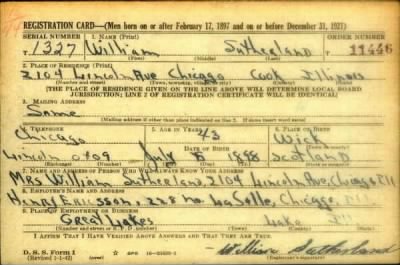 REGISTRATION CARD—(Men born on or after February 17, 1897 and on or before December 31, 1921)
SERIAL NUMBER 1. NAME (Print) ORDER NUMBER
T 1327 William Sutherland 11446
(First) (Middle) (Last)
2. PLACE OF RESIDENCE (Print)
2104 Lincoln Ave Chicago Cook Illinois
(Number and street) (Town, township, village, or city) (County) (State)
[THE PLACE OF RESIDENCE GIVEN ON THE LINE ABOVE WILL DETERMINE LOCAL BOARD
JURISDICTION; LINE 2 OF REGISTRATION CERTIFICATE WILL BE IDENTICAL]
3. MAILING ADDRESS
Same
[Mailing address if other than place indicated on line 2. If same insert word same]
4. TELEPHONE 5. AGE IN YEARS 6. PLACE OF BIRTH
Chicago 43 Wick
DATE OF BIRTH
Lincoln 0709 July 8 1898 Scotland
(Exchange) (Number) (Mo.) (Day) (Yr.) (State or country)
7. NAME AND ADDRESS OF PERSON WHO WILL ALWAYS KNOW YOUR ADDRESS
Mrs William Sutherland, 2104 Lincoln Ave, Chicago Ill
8. EMPLOYER'S NAME AND ADDRESS
Henry Ericsson, 228 no. LaSalle, Chicago,
9. PLACE OF EMPLOYMENT OR BUSINESS
Great Lakes Lake Ill
(Number and street or R. F. D. number) (Town) (County) (State)
I AFFIRM THAT I HAVE VERIFIED ABOVE ANSWERS AND THAT THEY ARE TRUE.
D. S. S. Form 1
(Revised 1-1-42) William Sutherland